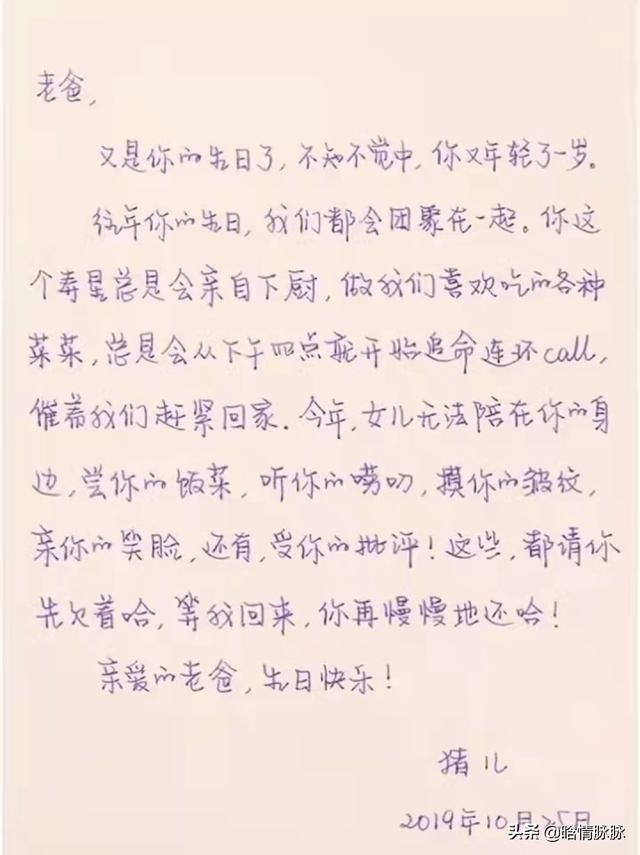 老爸，
又是你的生日了，不知不觉中，你又年轻了一岁。
往年你的生日，我们都会团聚在一起。你这
个寿星总是会亲自下厨，做我们喜欢吃的各种
菜菜，总是会从下午四点就开始追命连环call，
催着我们赶紧回家。今年，女儿无法陪在你的身
边，尝你的饭菜，听你的唠叨，摸你的皱纹，
亲你的笑脸，还有，受你的批评！这些，都请你
先欠着哈，等我回来，你再慢慢地还哈！
亲爱的老爸，生日快乐！
猪儿
2019年10月25日
头条@晗情脉脉